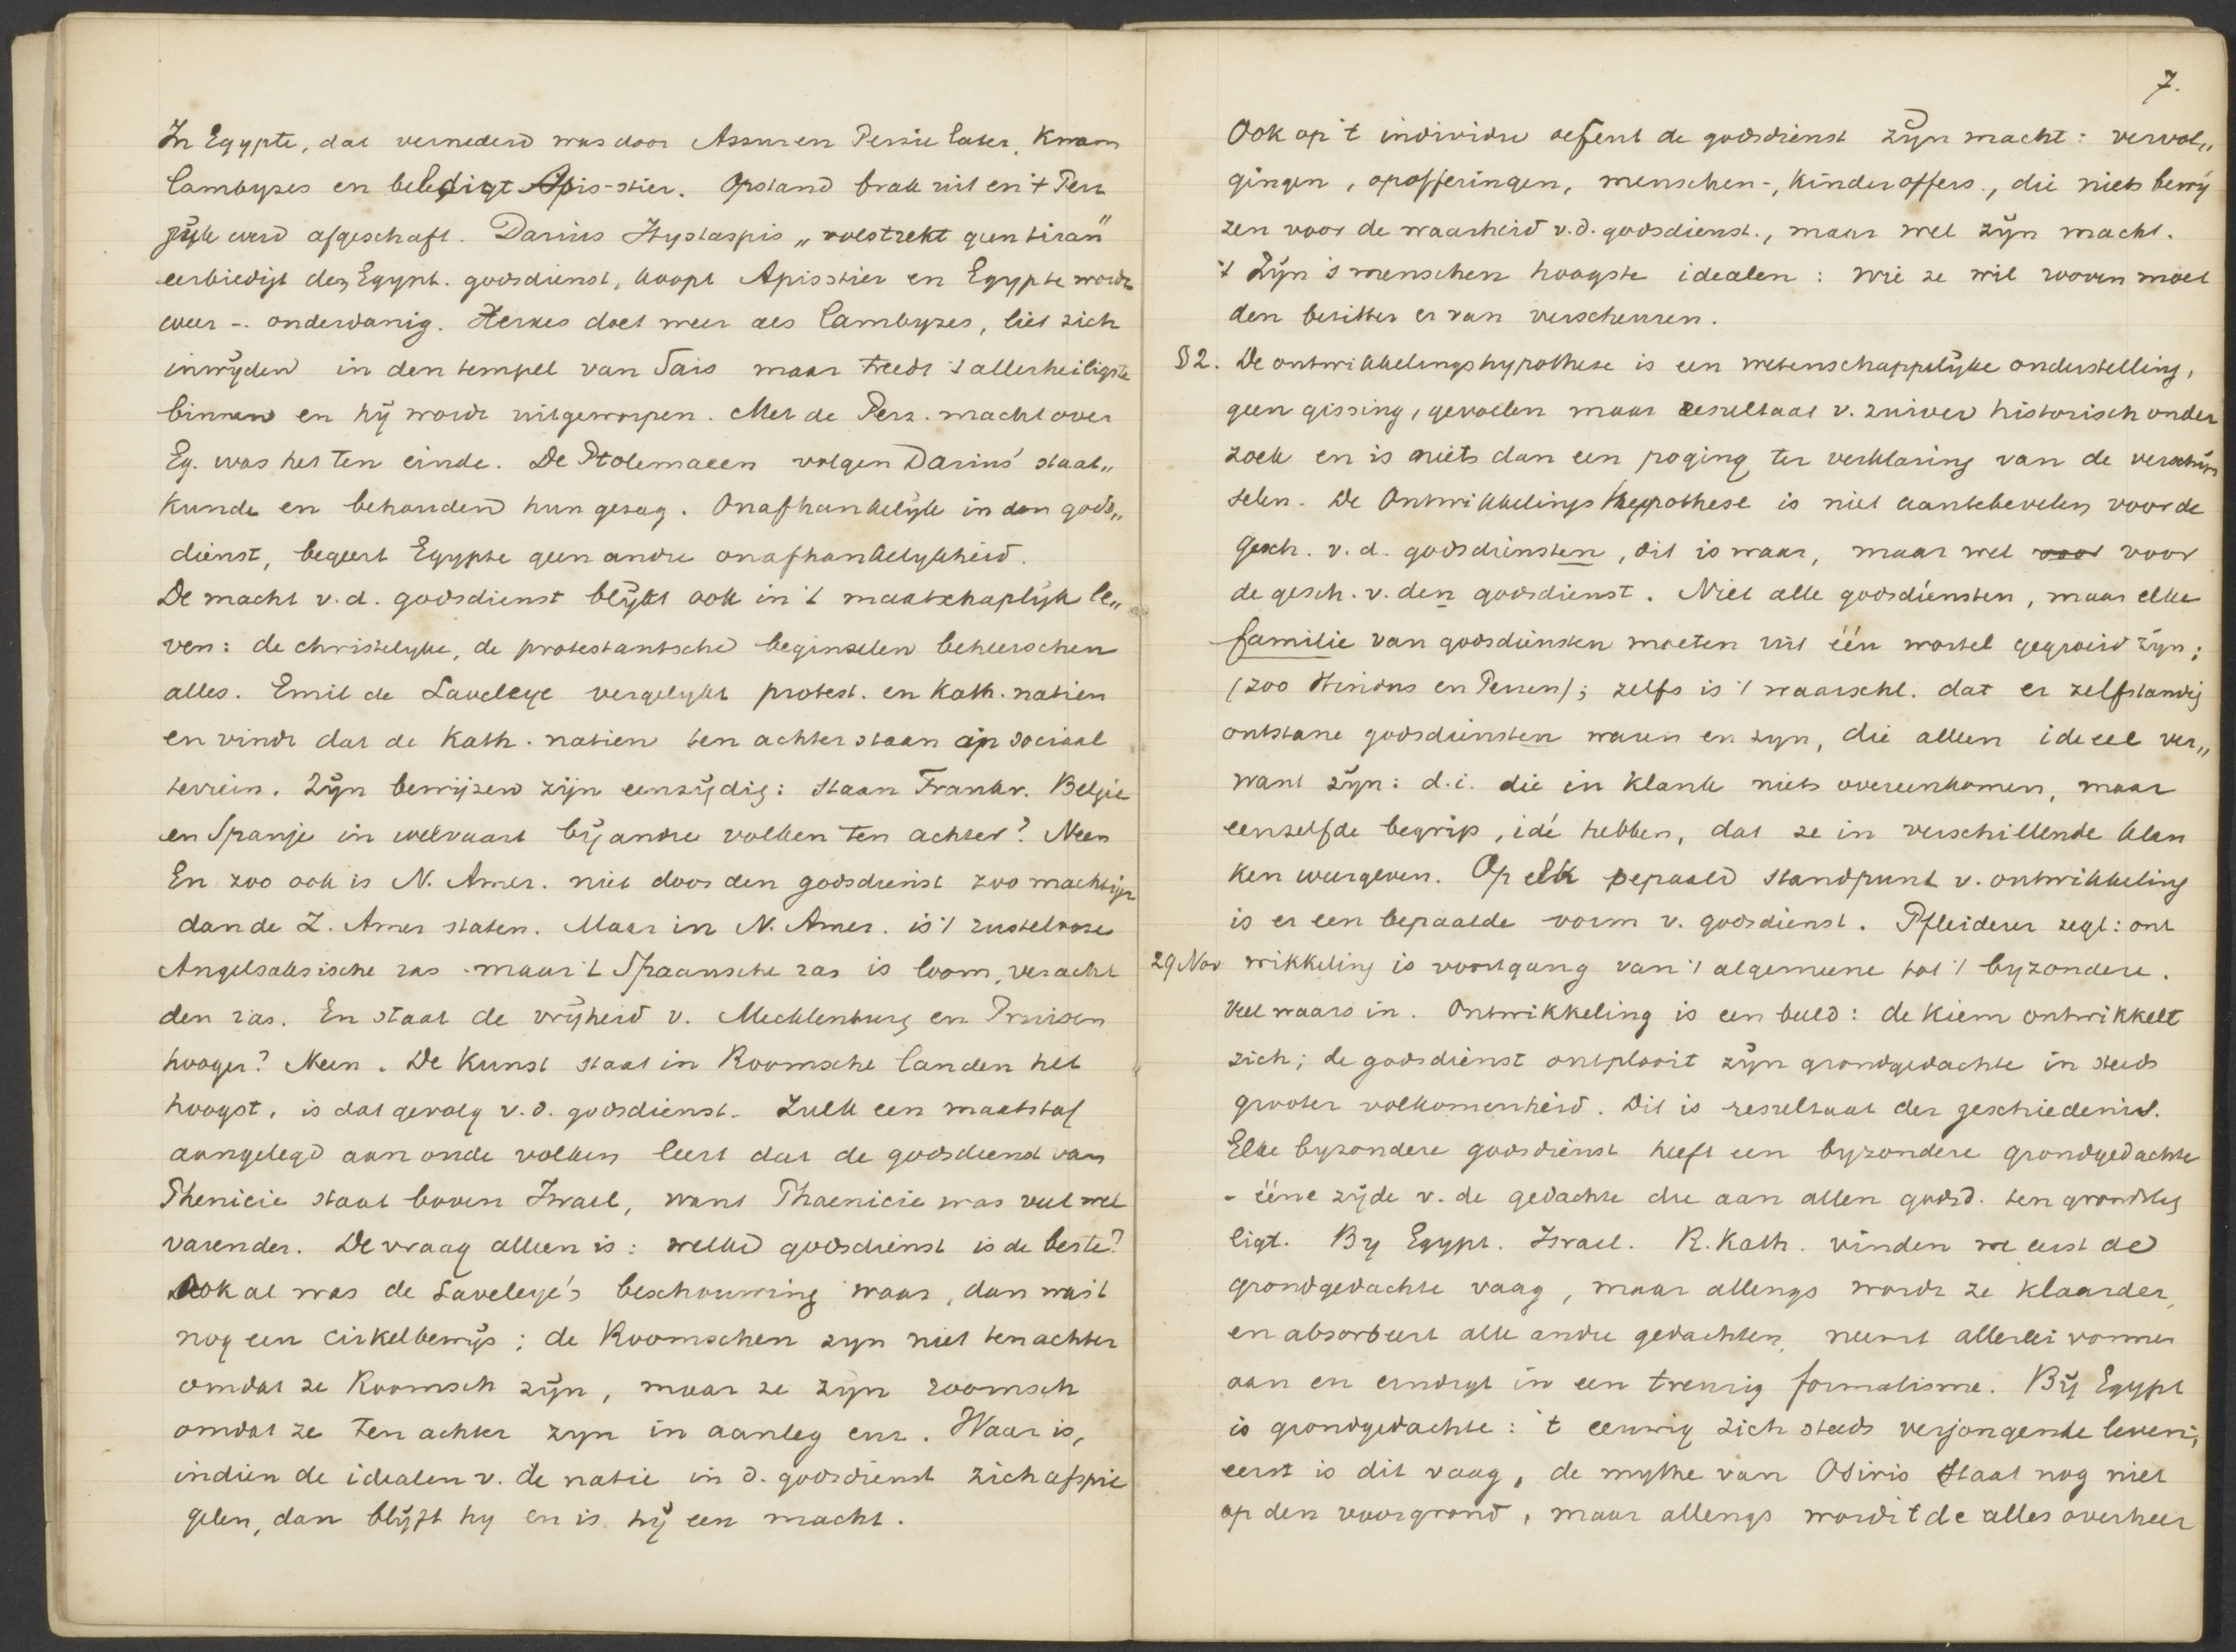 In Egypte, dat vernederd was door Assur en Perzie later, kwam
Cambyzes en beledigt Apis-stier. Opstand brak uit en 't Perz
juk werd afgeschaft. Darius Hystaspis „volstrekt geen tiran"
eerbiedigt den Egypt. godsdienst, koopt Apisstier en Egypte wordt
weer -. onderdanig. Xerxes doet meer als Cambyzes, liet zich
inwijden in den tempel van Sais maar treedt 't allerheiligste
binnen en hij wordt uitgeworpen. Met de Perz. macht over
Eg. was het ten einde. De Ptolemaeen volgen Darius' staat„
kunde en behouden hun gezag. Onafhankelijk in den gods„
dienst, begeert Egypte geen andre onafhankelykheid.
De macht v.d. godsdienst blijkt ook in 't maatschaplijk le„
ven: de christelyke, de protestantsche beginselen beheerschen
alles. Emil de Laveleye vergelykt protest. en Kath. natien
en vindt dat de Kath. natien ten achter staan op sociaal
terrein. Zijn bewijzen zijn eenzijdig: staan Frankr. Belgie
en Spanje in welvaart bij andre volken ten achter? Neen
En zoo ook is N. Amer. niet door den godsdienst zoo machtiger
dan de Z. Amer staten. Maar in N. Amer. is 't rustelooze
Angelsaksische ras maar 't Spaansche ras is loom, veracht
den ras. En staat de vrijheid v. Mecklenburg en Pruisen
hooger? Neen. De Kunst staat in Roomsche landen het
hoogst, is dat gevolg v.d. godsdienst. Zulk een maatstaf
aangelegd aan oude volken leert dat de godsdienst van
Phenicie staat boven Israel, want Phaenicie was veel wel
varender. De vraag alleen is: welke godsdienst is de beste?
Ook al was de Laveleye's beschouwing waar, dan was 't
nog een cirkelbewijs; de Roomschen zyn niet ten achter
omdat ze Roomsch zijn, maar ze zyn roomsch
omdat ze ten achter zyn in aanleg enz. Waar is,
indien de idealen v. de natie in d. godsdienst zich afspie
gelen, dan blijft hy en is hij een macht.
7.
Ook op 't individu oefent de godsdienst zijn macht: vervol„
gingen, opofferingen, menschen-, kinderoffers., die niets bewij
zen voor de waarheid v.d. godsdienst., maar wel zijn macht.
't Zijn 's menschen hoogste idealen: wie ze wil rooven moet
den bezitter er van verscheuren.
§2. De ontwikkelingshypothese is een wetenschappelijke onderstelling,
geen gissing, gevoelen maar resultaat v. zuiver historisch onder
zoek en is niets dan een poging ter verklaring van de verschijn
selen. De Ontwikkelings hypothese is niet aantebevelen voor de
Gesch. v.d. godsdiensten, dit is waar, maar wel voor voor
de gesch. v. den godsdienst. Niet alle godsdiensten, maar elke
familie van godsdiensten moeten uit één wortel gegroeid zijn;
(zoo Hindus en Perzen); zelfs is 't waarschl. dat er zelfstandig
ontstane godsdiensten waren en zyn, die alleen ideeel ver„
want zijn: d.i. die in klank niets overeenkomen, maar
eenzelfde begrip, idé hebben, dat ze in verschillende klan
ken weergeven. Op elk bepaald standpunt v. ontwikkeling
is er een bepaalde vorm v. godsdienst. Pfleiderer zegt: ont
29 Nov wikkeling is voortgang van 't algemeene tot 't byzondere.
Veel waars in. Ontwikkeling is een beeld: de kiem ontwikkelt
zich; de godsdienst ontplooit zijn grondgedachte in steeds
grooter volkomenheid. Dit is resultaat der geschiedenis.
Elke byzondere godsdienst heeft een byzondere grondgedachte
- ééne zijde v. de gedachte die aan allen godsd. ten grondslag
ligt. By Egypt. Israel. R. Kath. vinden we eerst de
grondgedachte vaag, maar allengs wordt ze klaarder,
en absorbeert alle andre gedachten, neemt allerlei vormen
aan en eindigt in een treurig formalisme. Bij Egypt
is grondgedachte: 't eeuwig zich steeds verjongende leven;
eerst is dit vaag, de mythe van Osiris staat nog niet
op den voorgrond, maar allengs wordt 't de alles overheer